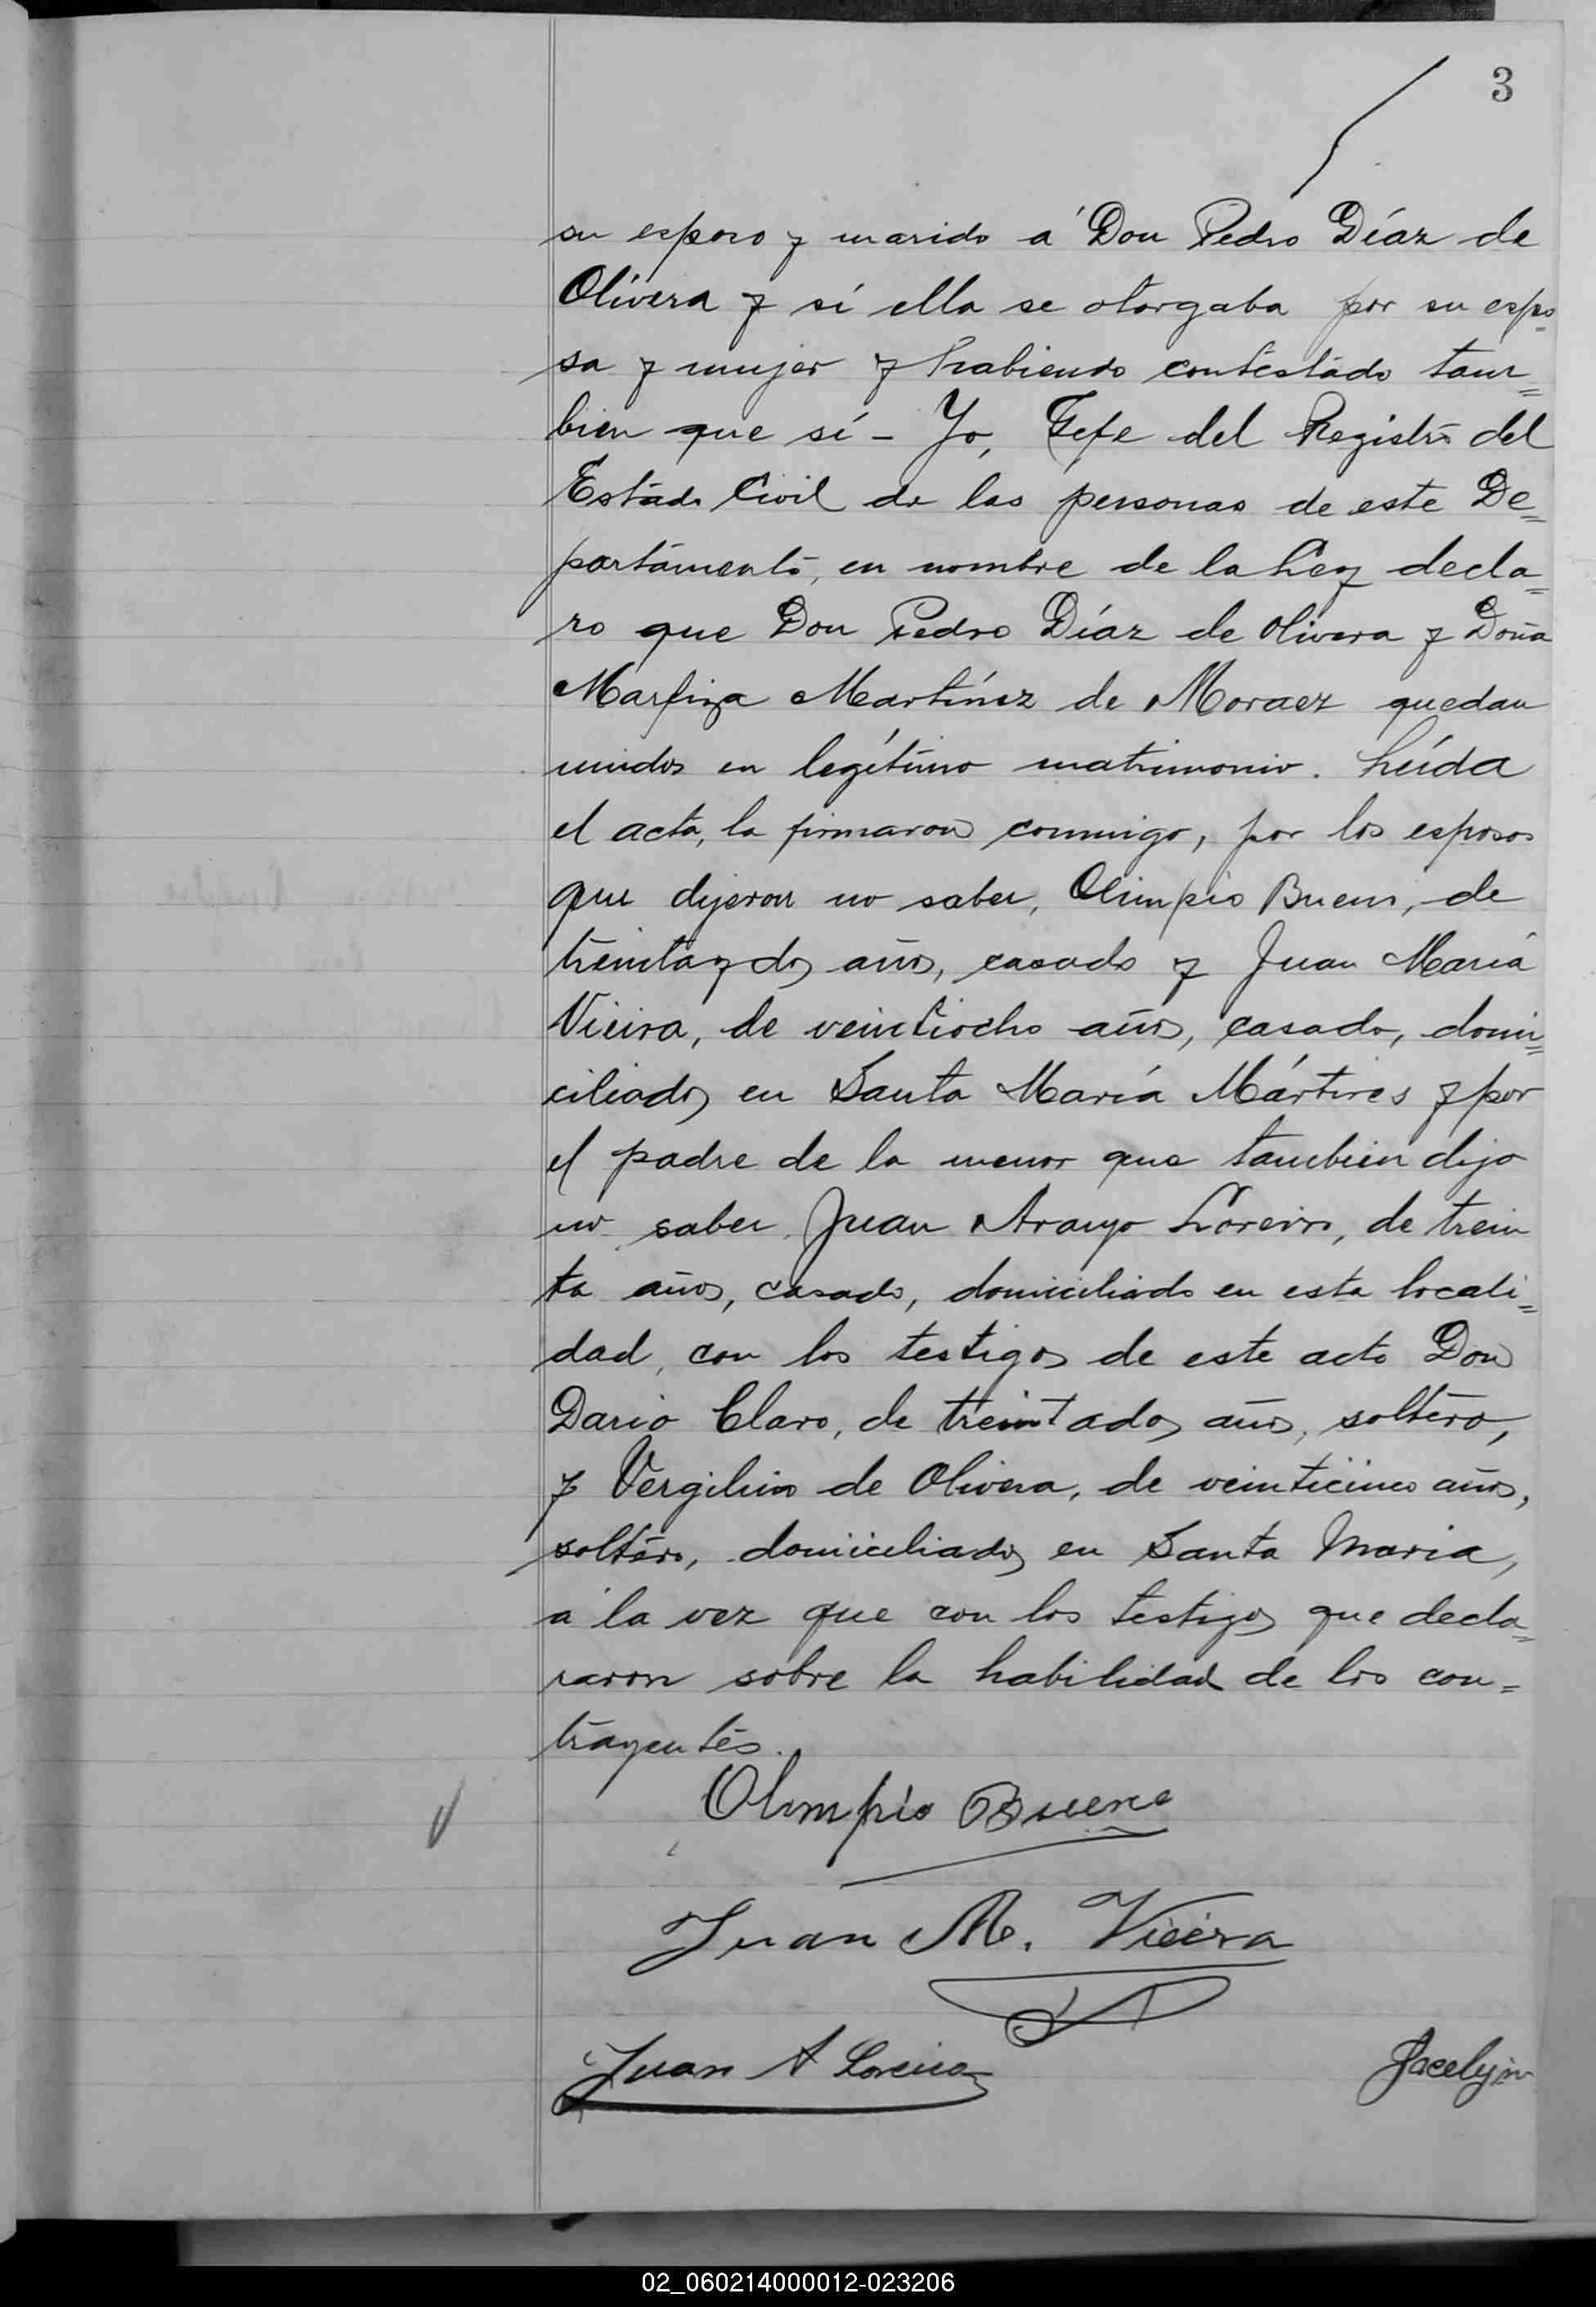 3
su esposo y marido á Don Pedro Díaz de
Olivera y sí ella se otorgaba por su espo=
sa y mujer y habiendo contestado tam=
bien que sí - Yo, Gefe del Registro del
Estado Civil de las personas de este De=
partamento, en nombre de la Ley decla=
ro que Don Pedro Díaz de Olivera y Doña
Marfiza Martínez de Moraez quedan
unidos en legítimo matrimonio. Leída
el acta, la firmaron conmigo, por los esposos
que dijeron no saber, Olimpio Bueno, de
treintaydos años, casado y Juan María
Vieira, de veintiocho años, casado, domi=
ciliados en Santa María Mártires y por
el padre de la menor que tambien dijo
no saber, Juan Araujo Loreiro, de trein
ta años, casado, domiciliado en esta locali=
dad, con los testigos de este acto Don
Dario Claro, de treintados años, soltero,
y Vergilino de Olivera, de veinticinco años,
soltero, domiciliados en Santa Maria,
a la vez que con los testigos que decla=
raron sobre la habilidad de los con=
trayentes.
Olimpio Bueno
Juan M. Vieira
Juan A Loreiro
Jocelyn
02_060214000012-023206